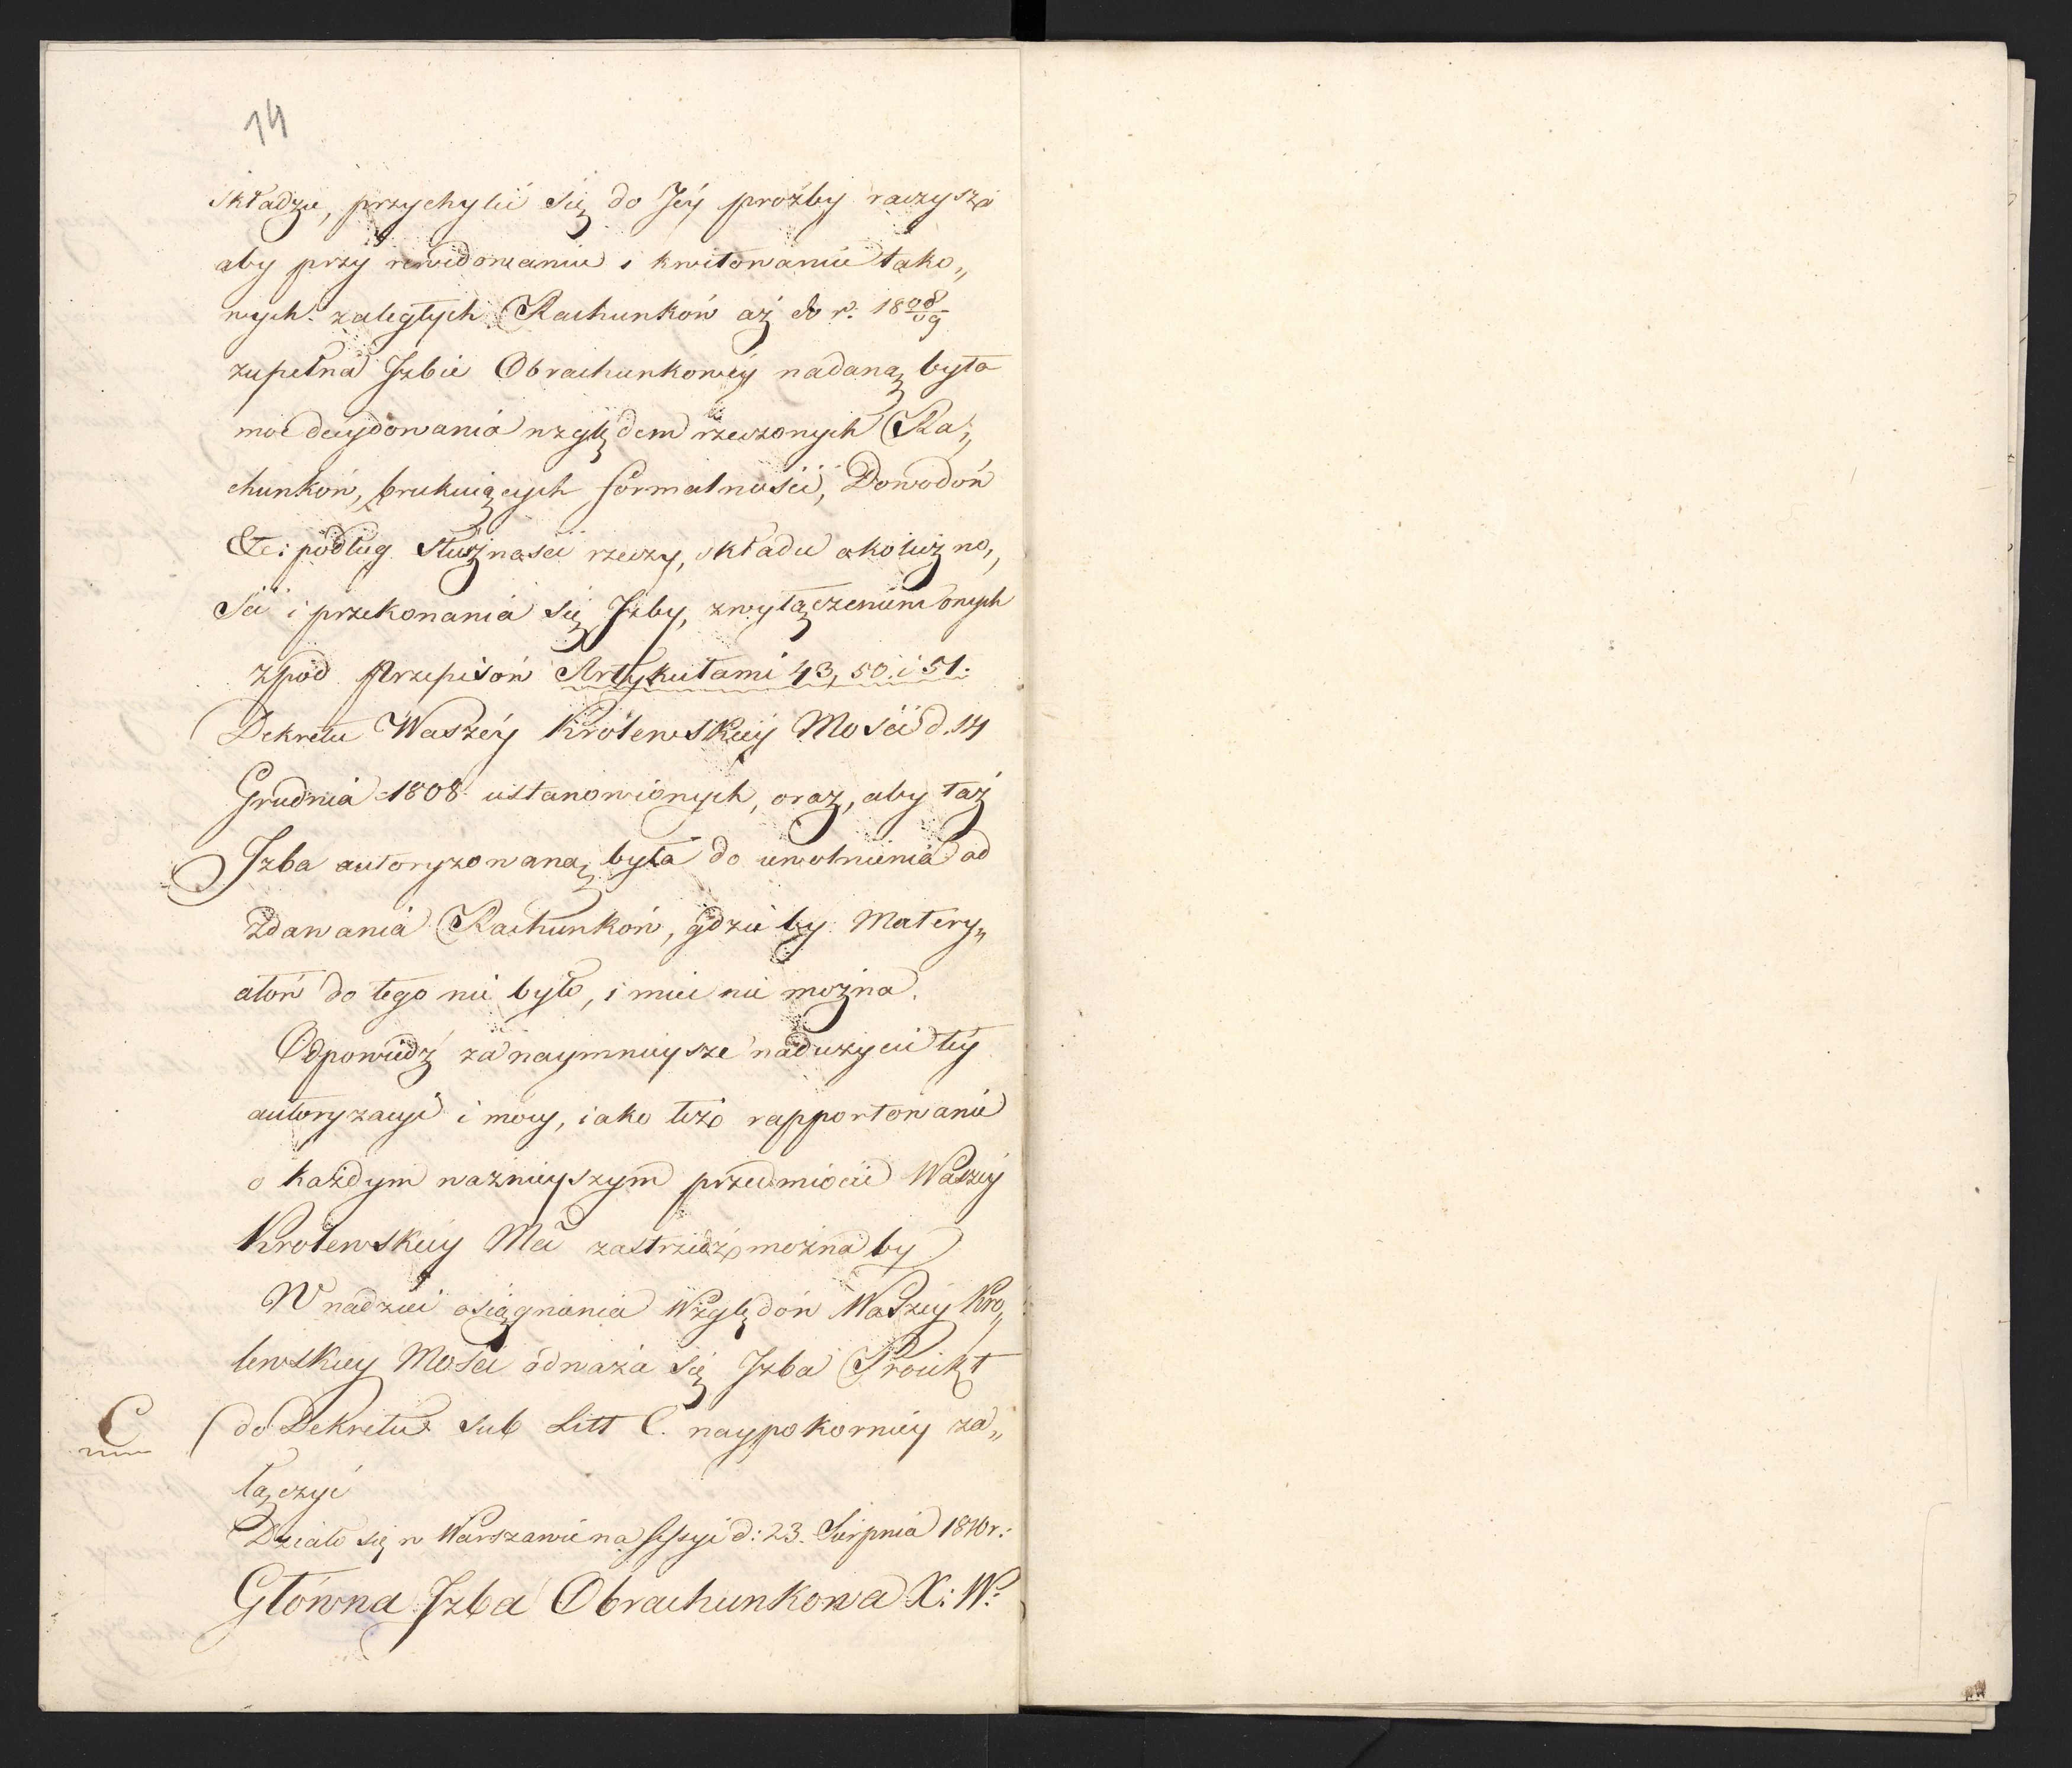 14
składzie, przychylić się do Jéy proźby raczysz,
aby przy rewidowaniu i kwitowaniu tako„
wych zaległych Rachunków aż do r. 18 08/09
zupełna Izbie Obrachunkowéy nadaną była
moc decydowania względem rzeczonych Ra„
chunków, brakuiących formalności, Dowodów
&c: podług słuszności rzeczy, składu okoliczno„
ści i przekonania się Izby, z wyłączeniem onych
z pod Przepisów Artykułami 43, 50. i 51.
Dekretu Waszéy Królewskiéy Mości d. 14
Grudnia 1808 ustanowionych, oraz, aby taż
Izba autoryzowaną była do uwolnienia od
Zdawania Rachunków, gdzie by Matery„
ałów do tego nie było, i mieć nie można.
Odpowiedź za naymnieysze nadużycie téy
autoryzacyi i mocy, iako też rapportowanie
o każdym ważnieyszym przedmiocie Waszéy
Królewskiéy Mci zastrzedz można by
W nadziei osiągnienia Względów Waszéy Kró„
lewskiey Mości odważa się Izba Proiekt
C do Dekretu sub Litt C. naypokorniéy za„
łączyć
Działo się w Warszawie na Sessyi d: 23. Sierpnia 1810 r:
Główna Izba Obrachunkowa X: W: